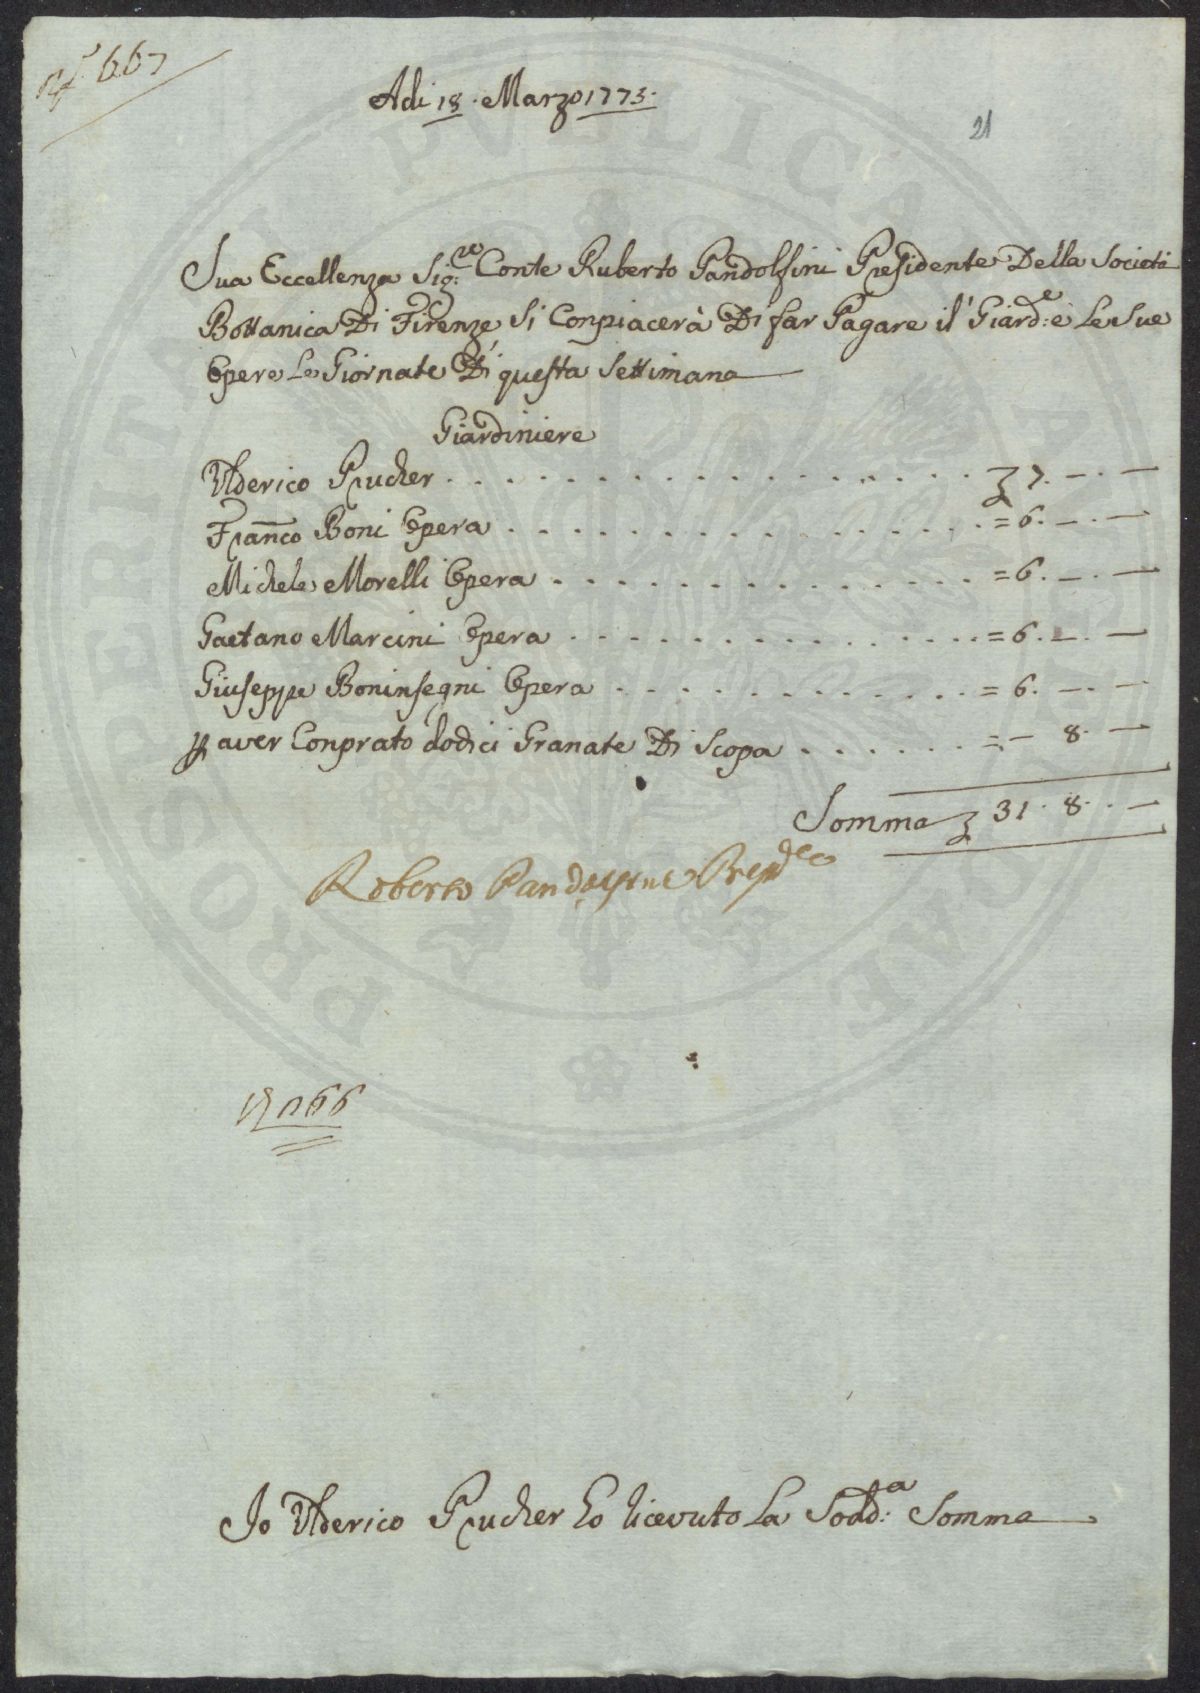 667
Adi 18. Marzo 1773.
21
Sua Eccellenza Sig:re Conte Ruberto Pandolfini Presidente Della Società
Bottanica Di Firenze, Si Conpiacerà Di far Pagare il Giard:e è Le Sue
Opere Le Giornate Di questa Settimana
Giardiniere
Ulderico Prucher . . . . . . . . . . . . . . . . . . 7. — . —
Franco Boni Opera . . . . . . . . . . . . . . . = 6. — . —
Michele Morelli Opera . . . . . . . . . . . . . . = 6. — . —
Gaetano Marcini Opera . . . . . . . . . . . . . = 6. — . —
Giuseppe Boninsegni Opera . . . . . . . . . . . . = 6. — . —
p aver Conprato dodici Granate Di Scopa . . . . . . = — 8. —
Somma 31. 8. —
Roberto Pandolfini Presid:e
66
Io Ulderico Prucher ho ricevuto La Sodd:a Somma
PROSPERITATI PVBLICAE